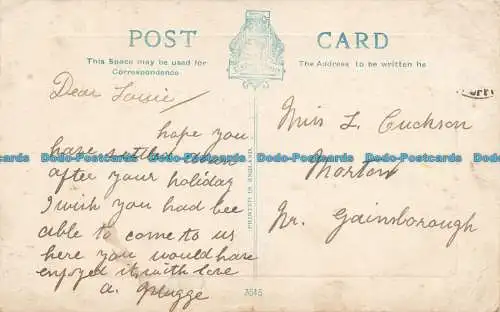 POST CARD
This Space may be used for
Correspondence
The Address to be written he
Dear Louie
hope you
have settled down
after your holiday
I wish you had bee
able to come to us
here you would have
enjoyed it, with love
a.
Miss L. Cuckson
Morton
Nr. Gainsborough
PRINTED IN ENGLAND.
3545
Dodo-Postcards Dodo-Postcards Dodo-Postcards Dodo-Postcards